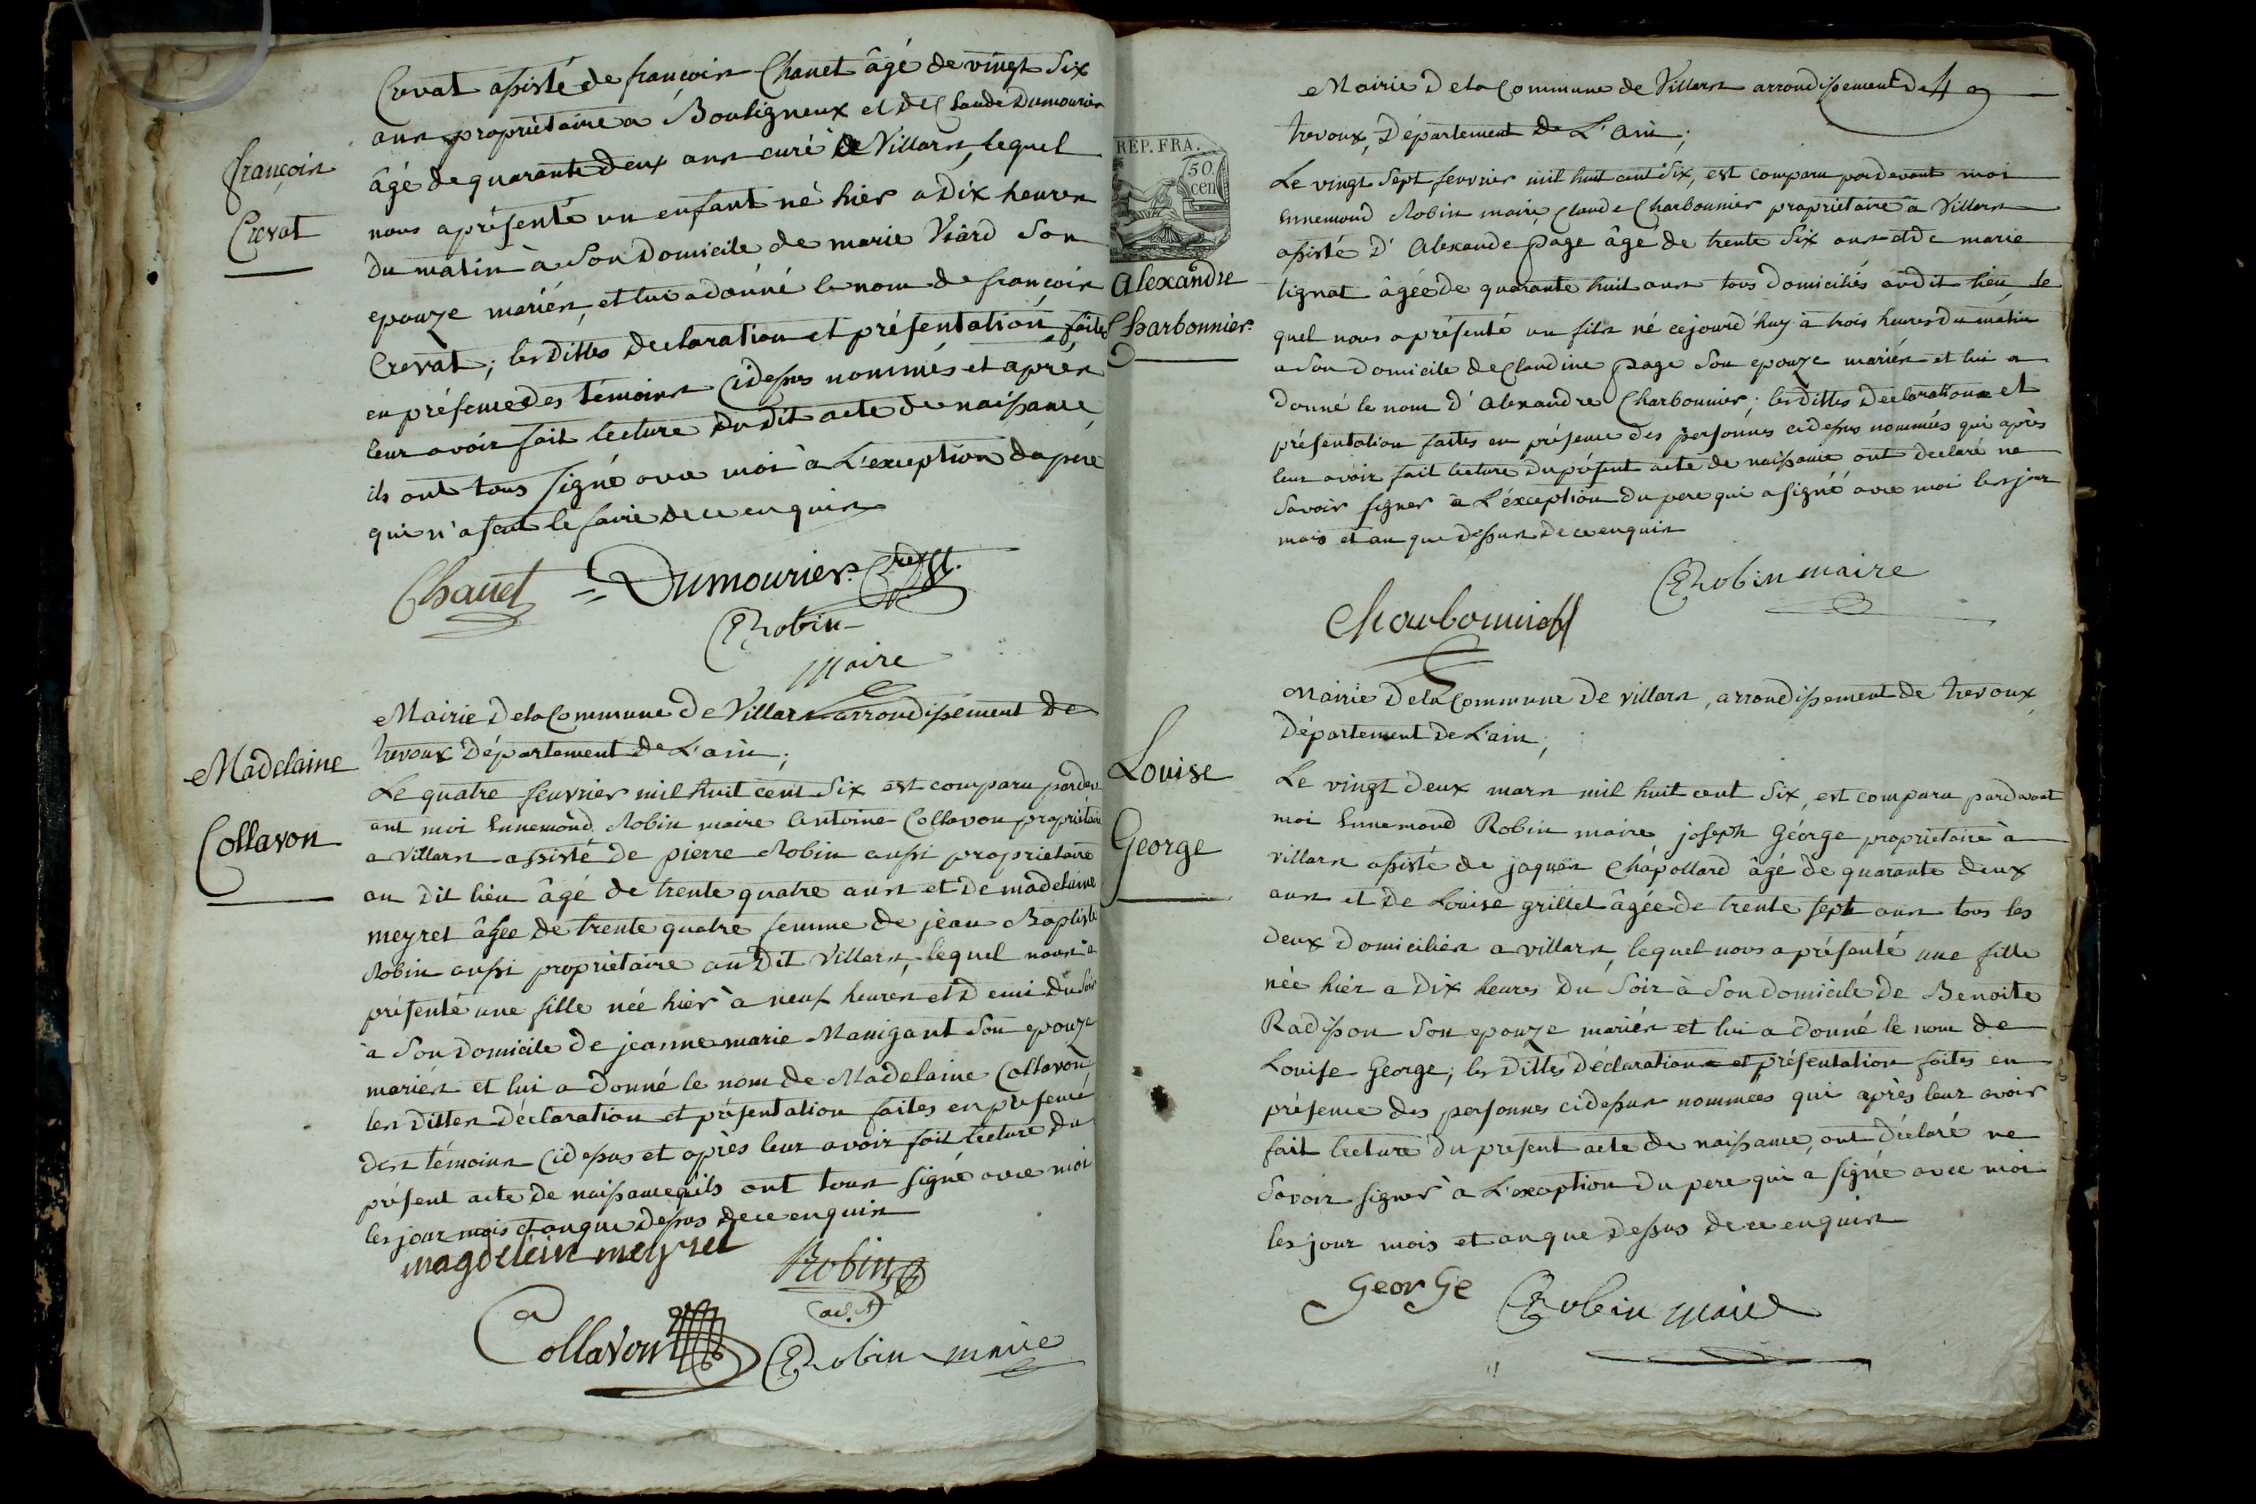 Crevat assisté de françois Chanet âgé de vingt Six
ans propriétaire a Bouligneux et de Claude Dumourier
âgé de quarante deux ans curé de Villars, lequel
nous a présenté un enfant né hier a Dix heures
du matin à Son Domicile de marie Viard Son
epouze mariés, et lui a donné le nom de françois
Crevat; lesDittes declaration et présentation faites
en présence des témoins cidessus nommés et après
leur avoir fait lecture du Dit acte de naissance
ils ont tous signé avec moi à L'exception du pere
qui n'a scu le faire de ce enquis
françois
Crevat
Chanet Dumourier
Robin
maire
Mairie De la Commune De Villars arrondissement De
trevoux Département de L'ain;
Le quatre fevrier mil huit cent Six est comparu pardev
ant moi Ennemond Robin maire Antoine Collavon propriétaire
a Villars assisté de pierre Robin aussi proprietaire
au Dit lieu âgé de trente quatre ans et de madelaine
meyret âgée de trente quatre femme de jean Baptiste
Robin aussi proprietaire au Dit Villars, lequel nous a
présenté une fille née hier à neuf heures et D emi du Soir
à Son Domicile de jeanne marie Manigant Son epouze
mariés et lui a donné le nom de Madelaine Collavon
les Dittes déclaration et présentation faites en présence
des témoins cidessus et après leur avoir fait lecture du
présent acte de naissance ils ont tous signé avec moi
les jour mois et an que Dessus de ce enquis
Madelaine
Collavon
magdelein meyret Robin
adj.t
Collavon Robin maire
Mairie De la Commune de Villars arrondissement De
trevoux, Département de L'ain;
Le vingt Sept fevrier mil huit cent Six, est comparu pardevant moi
Ennemond Robin maire, Claude Charbonnier propriétaire a Villars
assisté D'Alexandre page âgé de trente Six ans et de marie
lignat âgée de quarante huit ans tous Domiciliés audit lieu, le
quel nous a présenté un fils né cejourd'huy à trois heures du matin
a Son Domicile de Claudine page Son epouze mariés et lui a
donné le nom d'Alexandre Charbonnier; lesDittes Declarations et
présentation faites en présence des personnes cidessus nommées qui après
leur avoir fait lecture du présent acte de naissance ont declaré ne
Savoir signer à L'éxception du pere qui a signé avec moi les jour
mois et an que Dessus de ce enquis
REP. FRA.
50
cen
Alexandre
Charbonnier
Robin maire
Charbonnier
Mairie De la Commune De villars, arrondissement de trevoux,
Département De L'ain;
Le vingt deux mars mil huit cent Six, est comparu pardevant
moi Ennemond Robin maire joseph George proprietaire à
villars assisté de jaques Chapollard âgé de quarante deux
ans et de Louise grillet âgée de trente sept ans tous les
deux Domiciliés a villars, lequel nous a présenté une fille
née hier a Dix heures Du Soir à Son domicile de Benoite
Radisson Son epouze mariés et lui a donné le nom de
Louise George; les Dittes Déclarations et présentation faites en
présence des personnes cidessus nommées qui après leur avoir
fait lecture du present acte de naissance, ont déclaré ne
Savoir signer à L'exception Du pere qui a signé avec moi
les jour mois et an que Dessus de ce enquis
Louise
George
George Robin maire